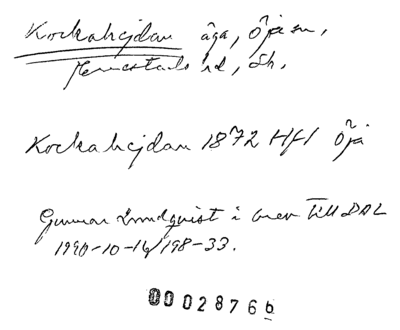 Kockahejdan åga, Öja sn,
Jemestads hd, Sk.
Kockahejdan 1872 Hfl Öja
Gunnar Lindqvist i brev till DAL
1990-10-16/198-33.
0002876b